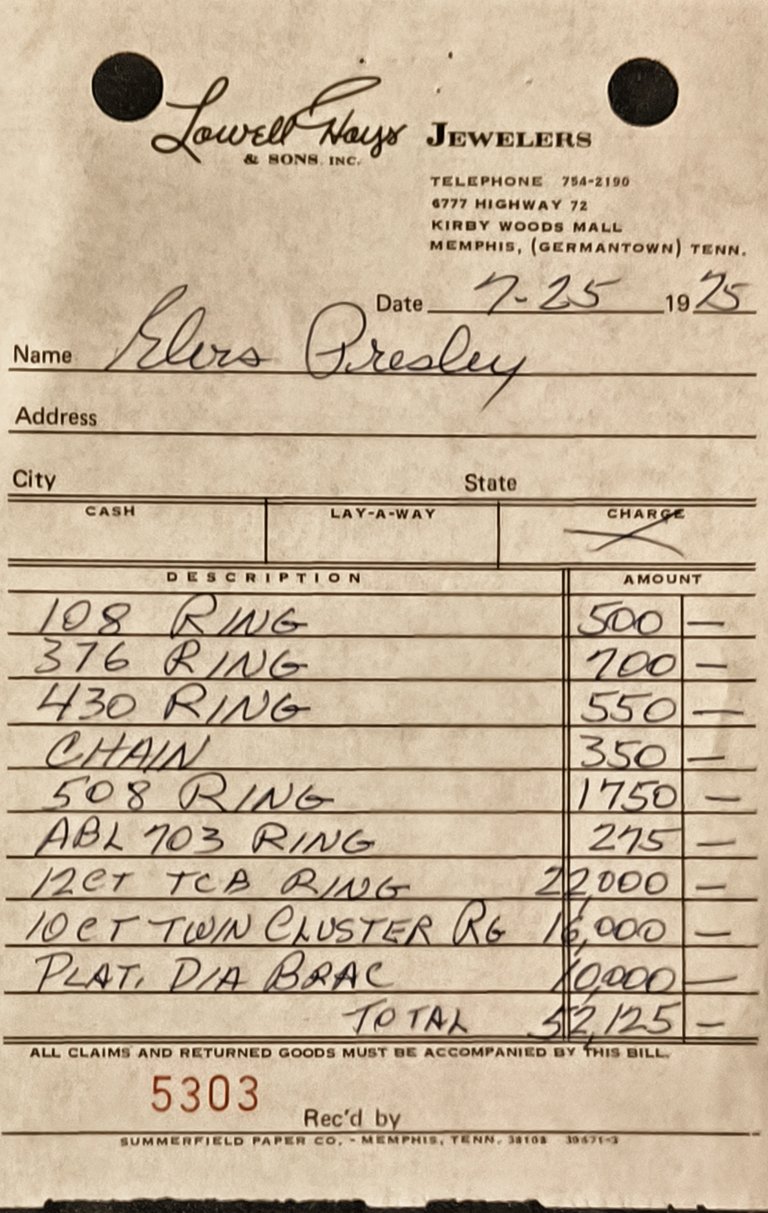 Lowell Hays JEWELERS
& SONS, INC.
TELEPHONE 754-2190
6777 HIGHWAY 72
KIRBY WOODS MALL
MEMPHIS, (GERMANTOWN) TENN.
Date 7-25 1975
Name Elvis Presley
Address
City State
CASH LAY-A-WAY CHARGE
DESCRIPTION AMOUNT
108 RING 500 —
376 RING 700 —
430 RING 550 —
CHAIN 350 —
508 RING 1750 —
ABL 703 RING 275 —
12CT TCB RING 22,000 —
10CT TWIN CLUSTER RG 16,000 —
PLAT. DIA BRAC 10,000 —
TOTAL 52,125 —
ALL CLAIMS AND RETURNED GOODS MUST BE ACCOMPANIED BY THIS BILL.
5303
Rec'd by
SUMMERFIELD PAPER CO. - MEMPHIS, TENN. 38108